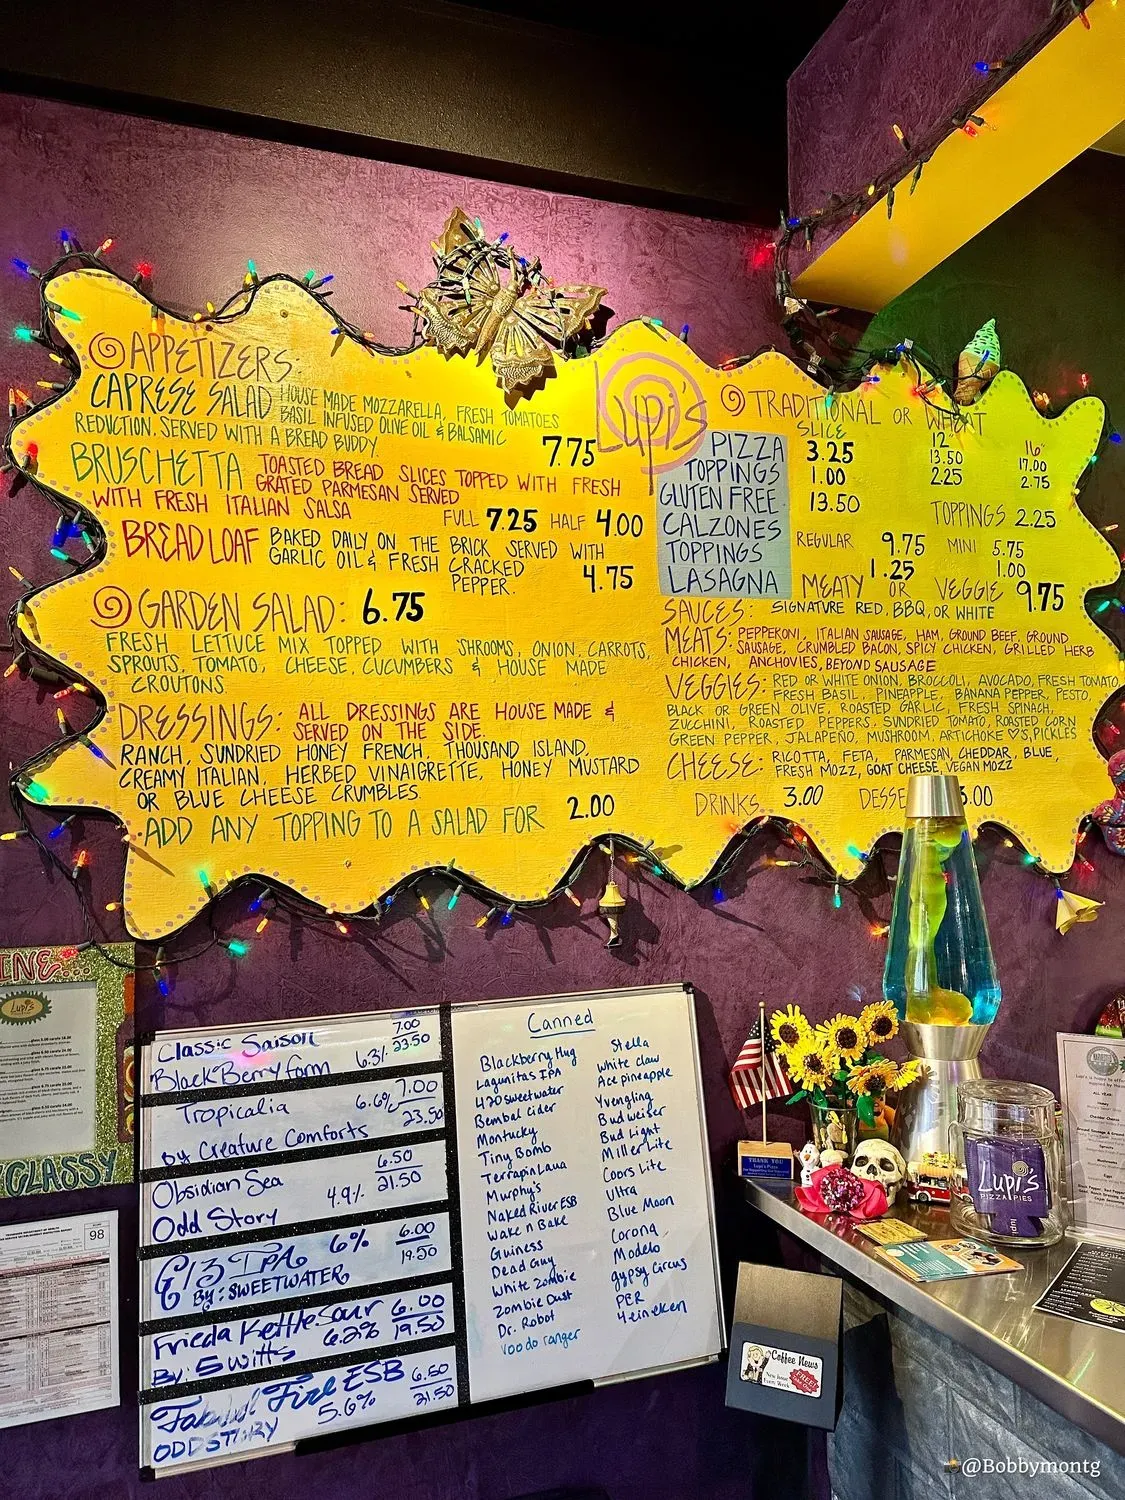 APPETIZERS:
CAPRESE SALAD HOUSE MADE MOZZARELLA, FRESH TOMATOES
BASIL INFUSED OLIVE OIL & BALSAMIC
REDUCTION. SERVED WITH A BREAD BUDDY. 7.75
BRUSCHETTA TOASTED BREAD SLICES TOPPED WITH FRESH
GRATED PARMESAN SERVED
WITH FRESH ITALIAN SALSA
FULL 7.25 HALF 4.00
BREAD LOAF BAKED DAILY ON THE BRICK SERVED WITH
GARLIC OIL & FRESH CRACKED
PEPPER. 4.75
GARDEN SALAD: 6.75
FRESH LETTUCE MIX TOPPED WITH 'SHROOMS, ONION, CARROTS,
SPROUTS, TOMATO, CHEESE, CUCUMBERS & HOUSE MADE
CROUTONS.
DRESSINGS: ALL DRESSINGS ARE HOUSE MADE &
SERVED ON THE SIDE.
RANCH, SUNDRIED HONEY FRENCH, THOUSAND ISLAND,
CREAMY ITALIAN, HERBED VINAIGRETTE, HONEY MUSTARD
OR BLUE CHEESE CRUMBLES.
ADD ANY TOPPING TO A SALAD FOR 2.00
LUPI'S
TRADITIONAL OR WHEAT
SLICE 12" 16"
PIZZA 3.25 13.50 17.00
TOPPINGS 1.00 2.25 2.75
GLUTEN FREE 13.50 TOPPINGS 2.25
CALZONES REGULAR 9.75 MINI 5.75
TOPPINGS 1.25 1.00
LASAGNA MEATY OR VEGGIE 9.75
SAUCES: SIGNATURE RED, BBQ, OR WHITE
MEATS: PEPPERONI, ITALIAN SAUSAGE, HAM, GROUND BEEF, GROUND
SAUSAGE, CRUMBLED BACON, SPICY CHICKEN, GRILLED HERB
CHICKEN, ANCHOVIES, BEYOND SAUSAGE
VEGGIES: RED OR WHITE ONION, BROCCOLI, AVOCADO, FRESH TOMATO,
FRESH BASIL, PINEAPPLE, BANANA PEPPER, PESTO,
BLACK OR GREEN OLIVE, ROASTED GARLIC, FRESH SPINACH,
ZUCCHINI, ROASTED PEPPERS, SUNDRIED TOMATO, ROASTED CORN
GREEN PEPPER, JALAPEÑO, MUSHROOM, ARTICHOKE ♡S, PICKLES
CHEESE: RICOTTA, FETA, PARMESAN, CHEDDAR, BLUE,
FRESH MOZZ, GOAT CHEESE, VEGAN MOZZ
DRINKS 3.00 DESSE 3.00
INE...
Lupi's
GLASSY
98
Classic Saison 7.00
BlackBerry farm 6.3% 23.50
Tropicalia 6.6% 7.00
by Creature Comforts 23.50
Obsidian Sea 6.50
Odd Story 4.9% 21.50
G13 IPA 6% 6.00
By: SWEETWATER 19.50
Frieda Kettle Sour 6.00
By: 5 Witts 6.2% 19.50
Fire ESB 6.50
ODD STORY 5.6% 21.50
Canned
Blackberry Hug
Lagunitas IPA
420 sweetwater
Bembal Cider
Montucky
Tiny Bomb
Terrapin Luau
Murphy's
Naked River ESB
Wake n Bake
Guiness
Dead Guy
White Zombie
Zombie Dust
Dr. Robot
voodo ranger
Stella
White Claw
Ace pineapple
Yvengling
Budweiser
Bud Light
Miller Lite
Coors Lite
Ultra
Blue Moon
Corona
Modelo
gypsy circus
PBR
Heineken
THANK YOU
Lupi's Pizza
Lupi's
PIZZA PIES
lupi
Coffee News
FREE
@Bobbymontg